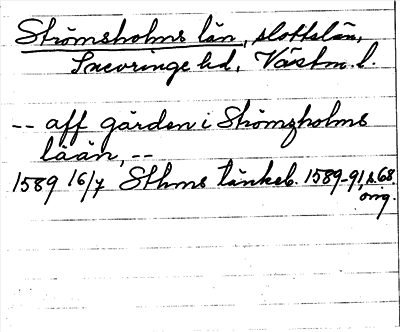 Strömsholms län, slottslän,
Snevringe hd, Västm. l.
-- aff gården i Strömszholms
lään, --
1589 16/7 Sthms tänkeb. 1589-91, s. 68.
orig.